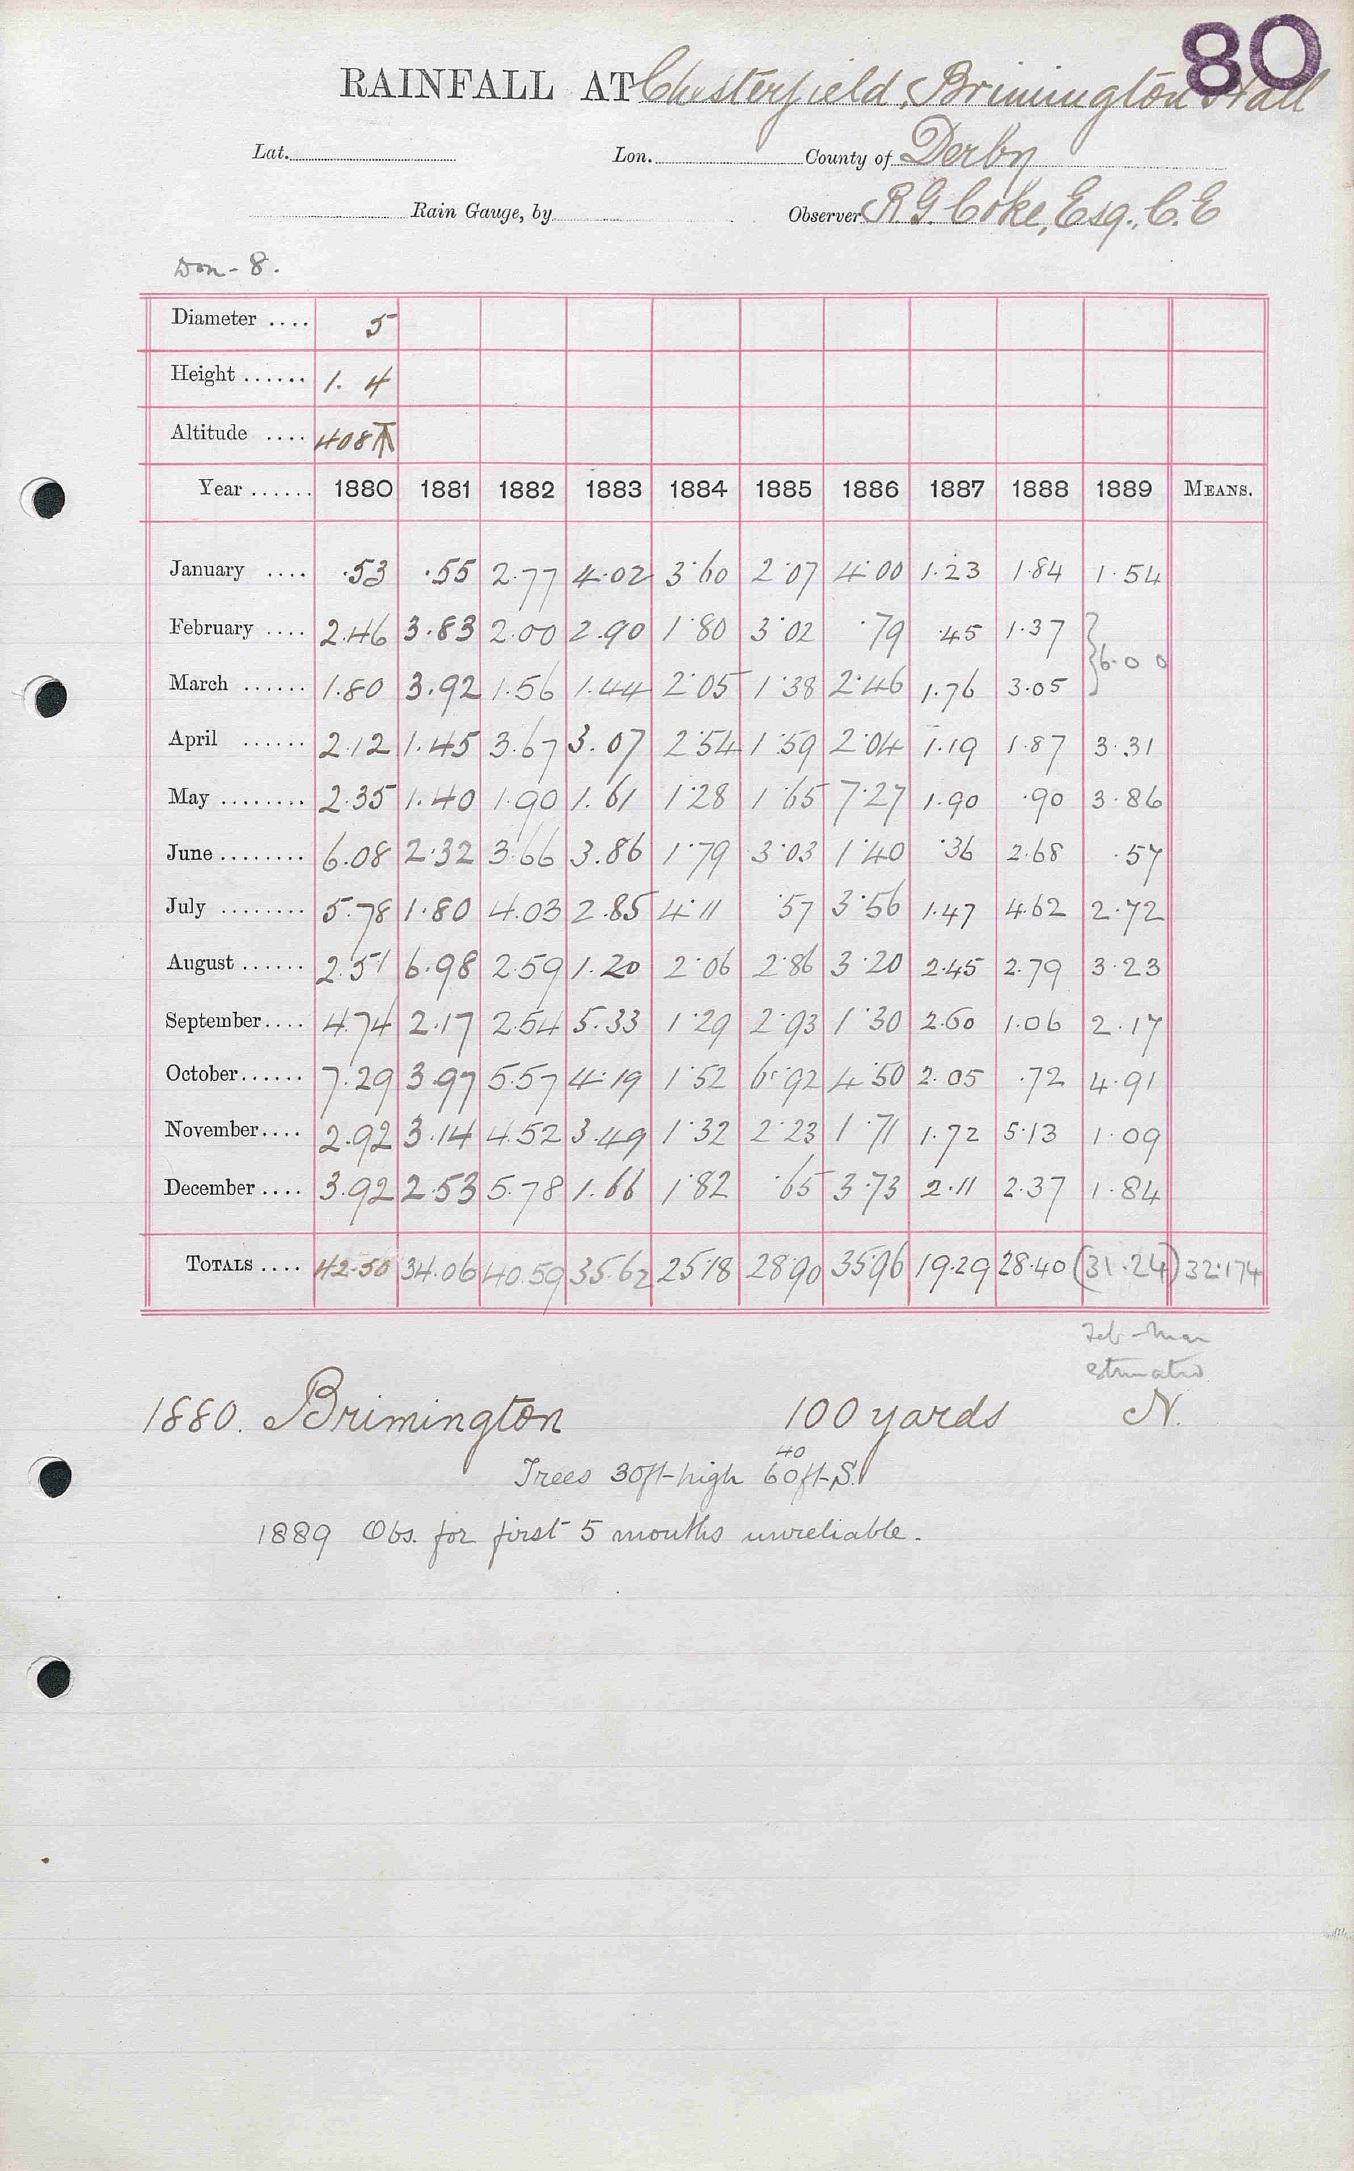 80
RAINFALL AT Chesterfield, Brimington Hall
Lat. Lon. County of Derby
Rain Gauge, by Observer R.G. Coke, Esq., C.E
Don - 8.
Diameter .... 5
Height ...... 1. 4
Altitude .... 408
Year ...... 1880 1881 1882 1883 1884 1885 1886 1887 1888 1889 MEANS.
January .... .53 .55 2.77 4.02 3.60 2.07 4.00 1.23 1.84 1.54
February .... 2.46 3.83 2.00 2.90 1.80 3.02 .79 .45 1.37 } 6.00
March ...... 1.80 3.92 1.56 1.44 2.05 1.38 2.46 1.76 3.05
April ...... 2.12 1.45 3.67 3.07 2.54 1.59 2.04 1.19 1.87 3.31
May ........ 2.35 1.40 1.90 1.61 1.28 1.65 7.27 1.90 .90 3.86
June ........ 6.08 2.32 3.66 3.86 1.79 3.03 1.40 .36 2.68 .57
July ........ 5.78 1.80 4.03 2.85 4.11 .57 3.56 1.47 4.62 2.72
August ...... 2.51 6.98 2.59 1.20 2.06 2.86 3.20 2.45 2.79 3.23
September .... 4.74 2.17 2.54 5.33 1.29 2.93 1.30 2.60 1.06 2.17
October ...... 7.29 3.97 5.57 4.19 1.52 6.92 4.50 2.05 .72 4.91
November .... 2.92 3.14 4.52 3.49 1.32 2.23 1.71 1.72 5.13 1.09
December .... 3.92 2.53 5.78 1.66 1.82 .65 3.73 2.11 2.37 1.84
TOTALS .... 42.50 34.06 40.59 35.62 25.18 28.90 35.96 19.29 28.40 (31.24) 32.174
Feb - Mar
estimated
1880. Brimington 100 yards N.
40
Trees 30ft-high 60ft-S.
1889 Obs. for first 5 months unreliable.